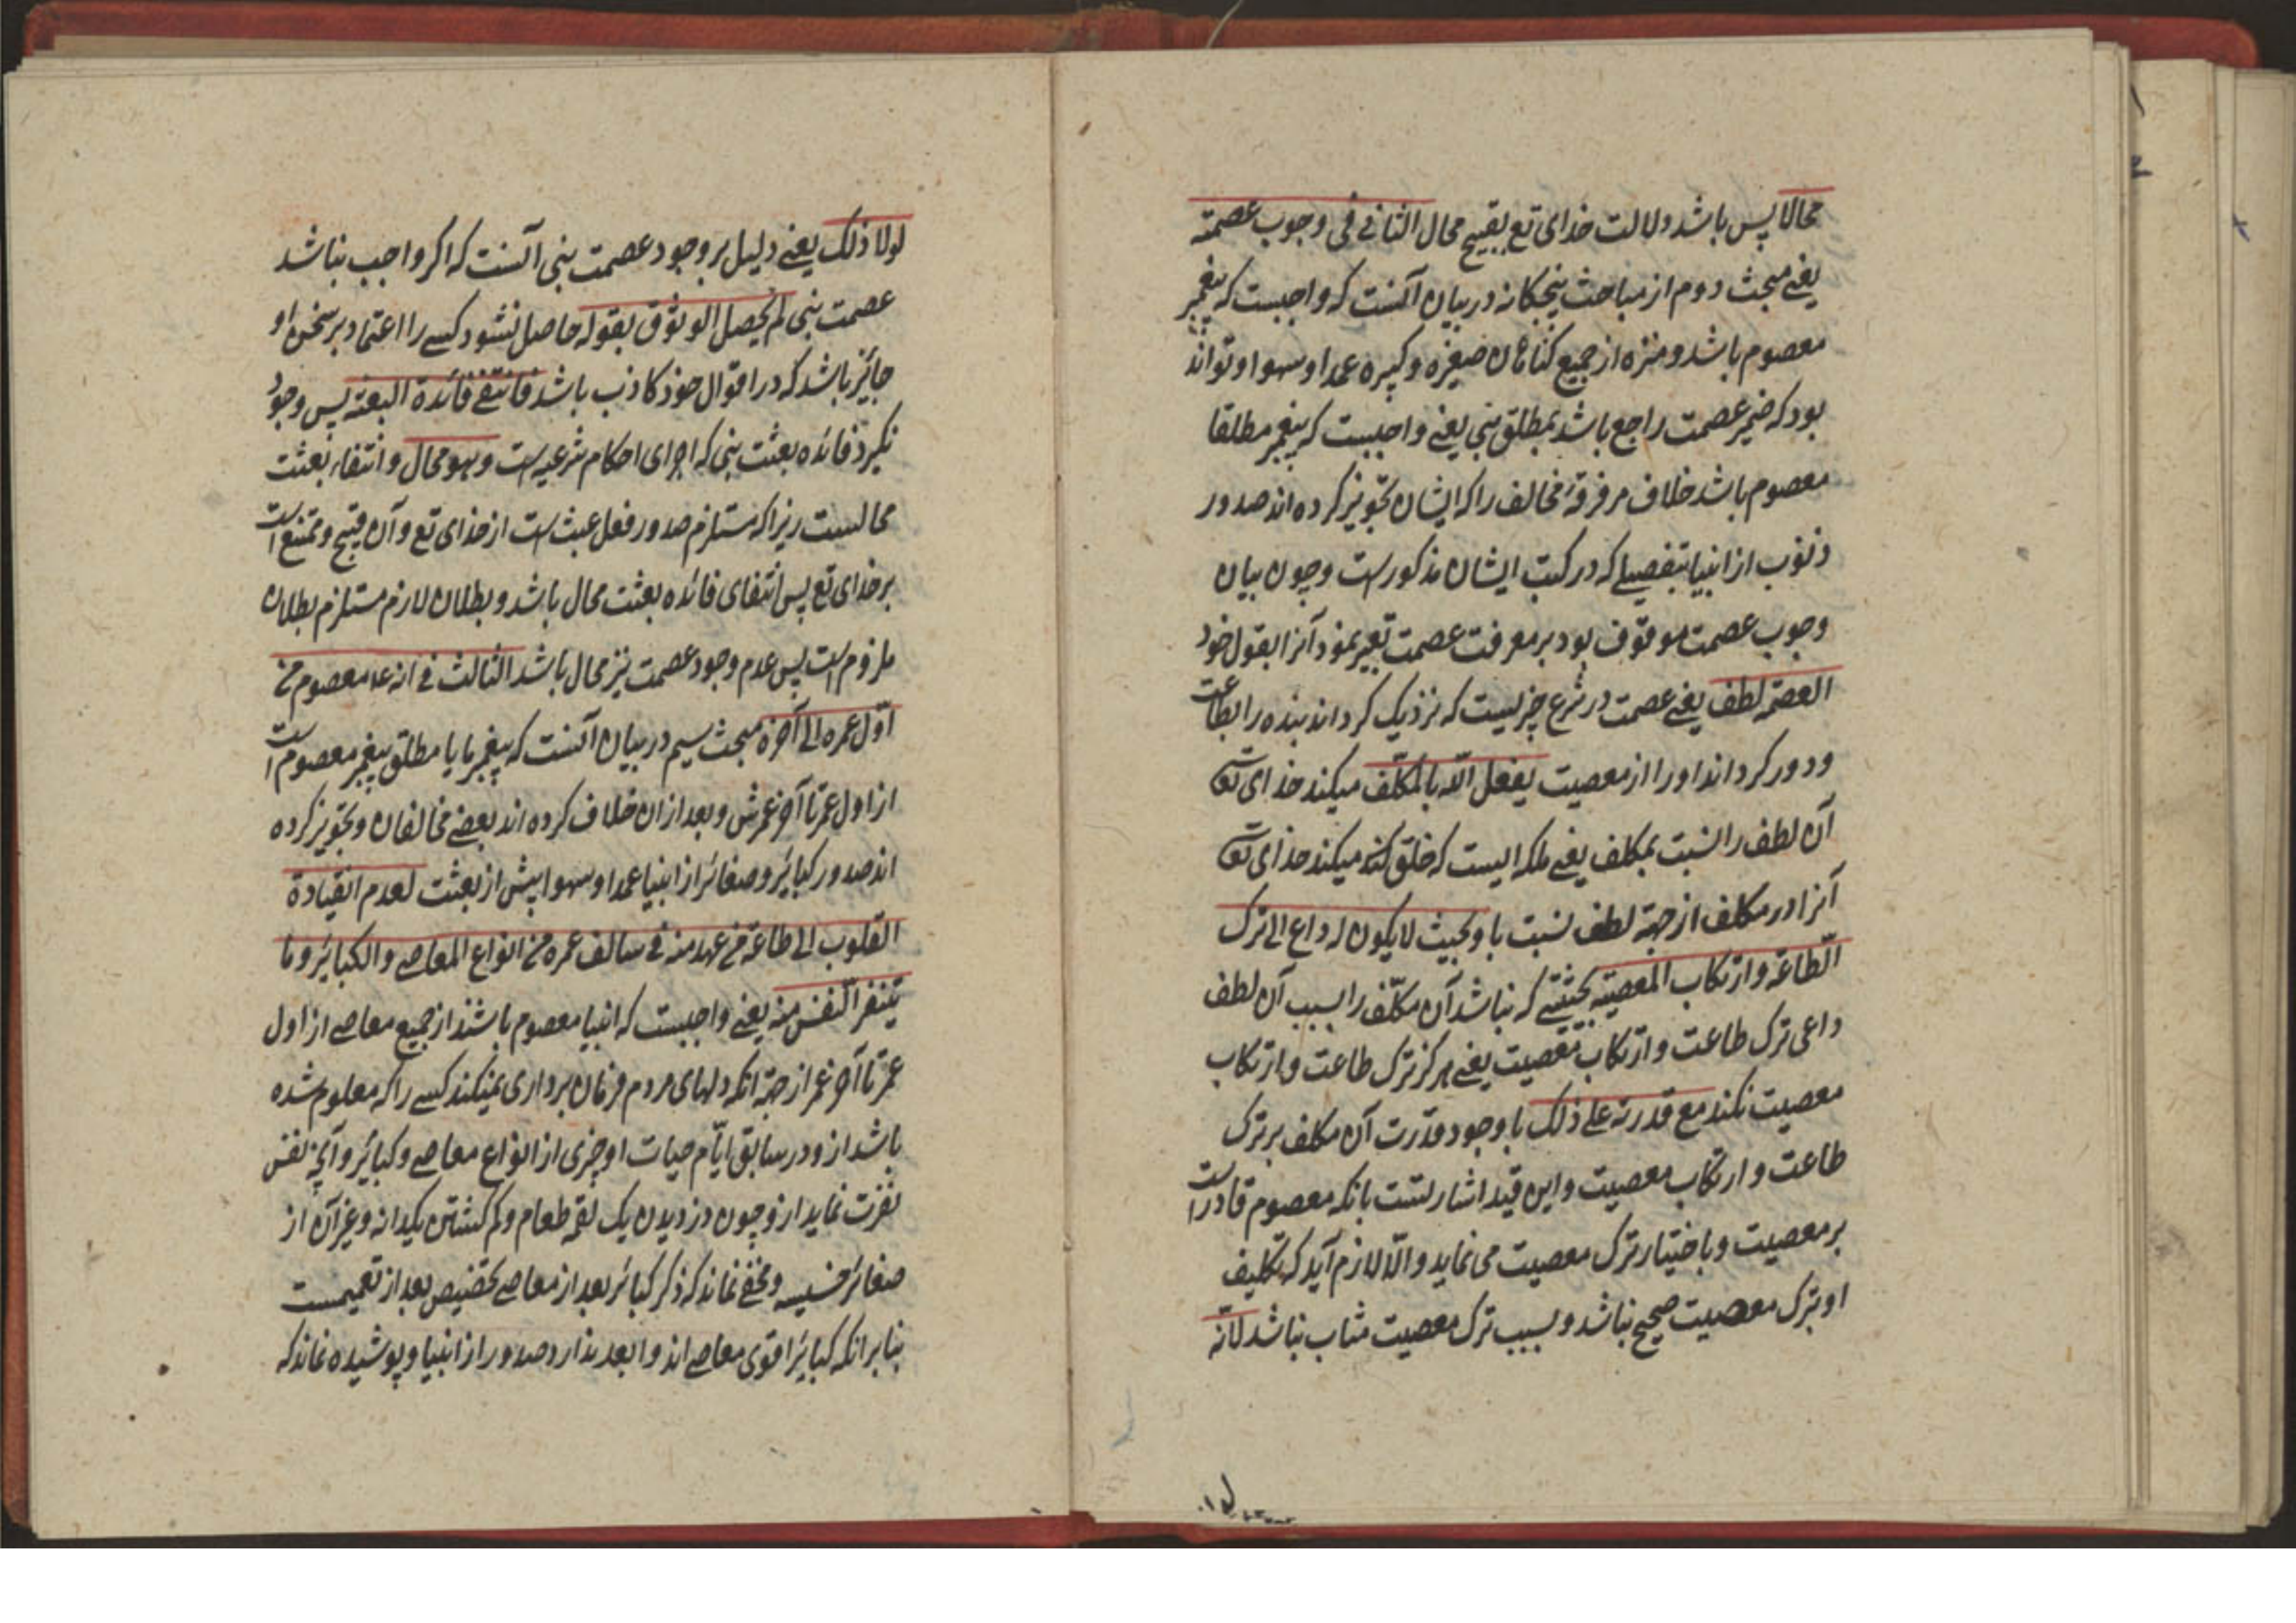 محالا پس باشد دلالت خدای تع بقبیح محال الثانی فی وجوب عصمته
یعنے مبحث دوم از مباحث پنجکانه در بیان آنست که واجبست که پیغمبر
معصوم باشد و منزه از جمیع کناهان صغیره و کبیره عمدا و سهوا و تواند
بود که ضمیر عصمت راجع باشد بمطلق نبی یعنے واجبست که پیغمبر مطلقا
معصوم باشد خلاف مر فرقهٔ مخالف را که ایشان تجویز کرده اند صدور
ذنوب از انبیا بتفصیلے که در کتب ایشان مذکورست و چون بیان
وجوب عصمت موقوف بود بر معرفت عصمت تعبیر نمود آنرا بقول خود
العصمة لطف یعنے عصمت در شرع چیزیست که نزدیک کرداند بنده را بطاعت
و دور کرداند او را از معصیت یفعل الله بالمکلّف میکند خدای تعالی
آن لطف را نسبت بمکلف یعنے ملکه ایست که خلق میکند خدای تعالی
آنرا در مکلف از جهة لطف نسبت باو بحیث لا یکون له داع الی ترک
الطّاعة و ارتکاب المعصیة بحیثیتے که نباشد آن مکلّف را بسبب آن لطف
داعی ترک طاعت و ارتکاب معصیت یعنے هرکز ترک طاعت و ارتکاب
معصیت نکند مع قدرته علے ذلک با وجود قدرت آن مکلف بر ترک
طاعت و ارتکاب معصیت و این قید اشارتست بانکه معصوم قادر است
بر معصیت و باختیار ترک معصیت می نماید و الّا لازم آید که تکلیف
او بترک معصیت صحیح نباشد و بسبب ترک معصیت مثاب نباشد لانّه
لولا ذلک یعنے دلیل بر وجود عصمت نبی آنست که اکر واجب نباشد
عصمت نبی لم یحصل الوثوق بقوله حاصل نشود کسے را اعتماد بر سخن او
جائز باشد که در اقوال خود کاذب باشد فانتفے فائدة البعثه پس وجود
نکیرد فائده بعثت نبی که اجرای احکام شرعیه است و هو محال و انتفاء بعثت
محالست زیرا که مستلزم صدور فعل عبث است از خدای تع و آن قبیح و ممتنع است
بر خدای تع پس انتفای فائده بعثت محال باشد و بطلان لازم مستلزم بطلان
ملزوم است پس عدم وجود عصمت نیز محال باشد الثالث فی انه ع معصوم من
اوّل عمره الی آخره مبحث سیم در بیان آنست که پیغمبر ما یا مطلق پیغمبر معصوم است
از اول عمر تا آخر عمرش و بعد ازان خلاف کرده اند بعضے مخالفان و تجویز کرده
اند صدور کبائر و صغائر از انبیا عمدا و سهوا پیش از بعثت لعدم انقیادة
القلوب الی طاعة من عهد منه فی سالف عمره من انواع المعاصی و الکبائر و ما
یتنفر النّفس منه یعنے واجبست که انبیا معصوم باشند از جمیع معاصے از اول
عمر تا آخر عمر از جهة انکه دلهای مردم فرمان برداری نمیکند کسے را که معلوم شده
باشد ازو در سابق ایّام حیات او چیزی از انواع معاصے و کبائر و آنچه نفس
نفرت نماید ازو چون دزدیدن یک لقمه طعام و کم کشتن یکدانه و غیر آن از
صغائر خسیسه و مخفے نماند که ذکر کبائر بعد از معاصے تخصیص بعد از تعمیمست
بنا بر انکه کبائر اقوی معاصے اند و ابعد ندارد صدور از انبیا و پوشیده نماند که